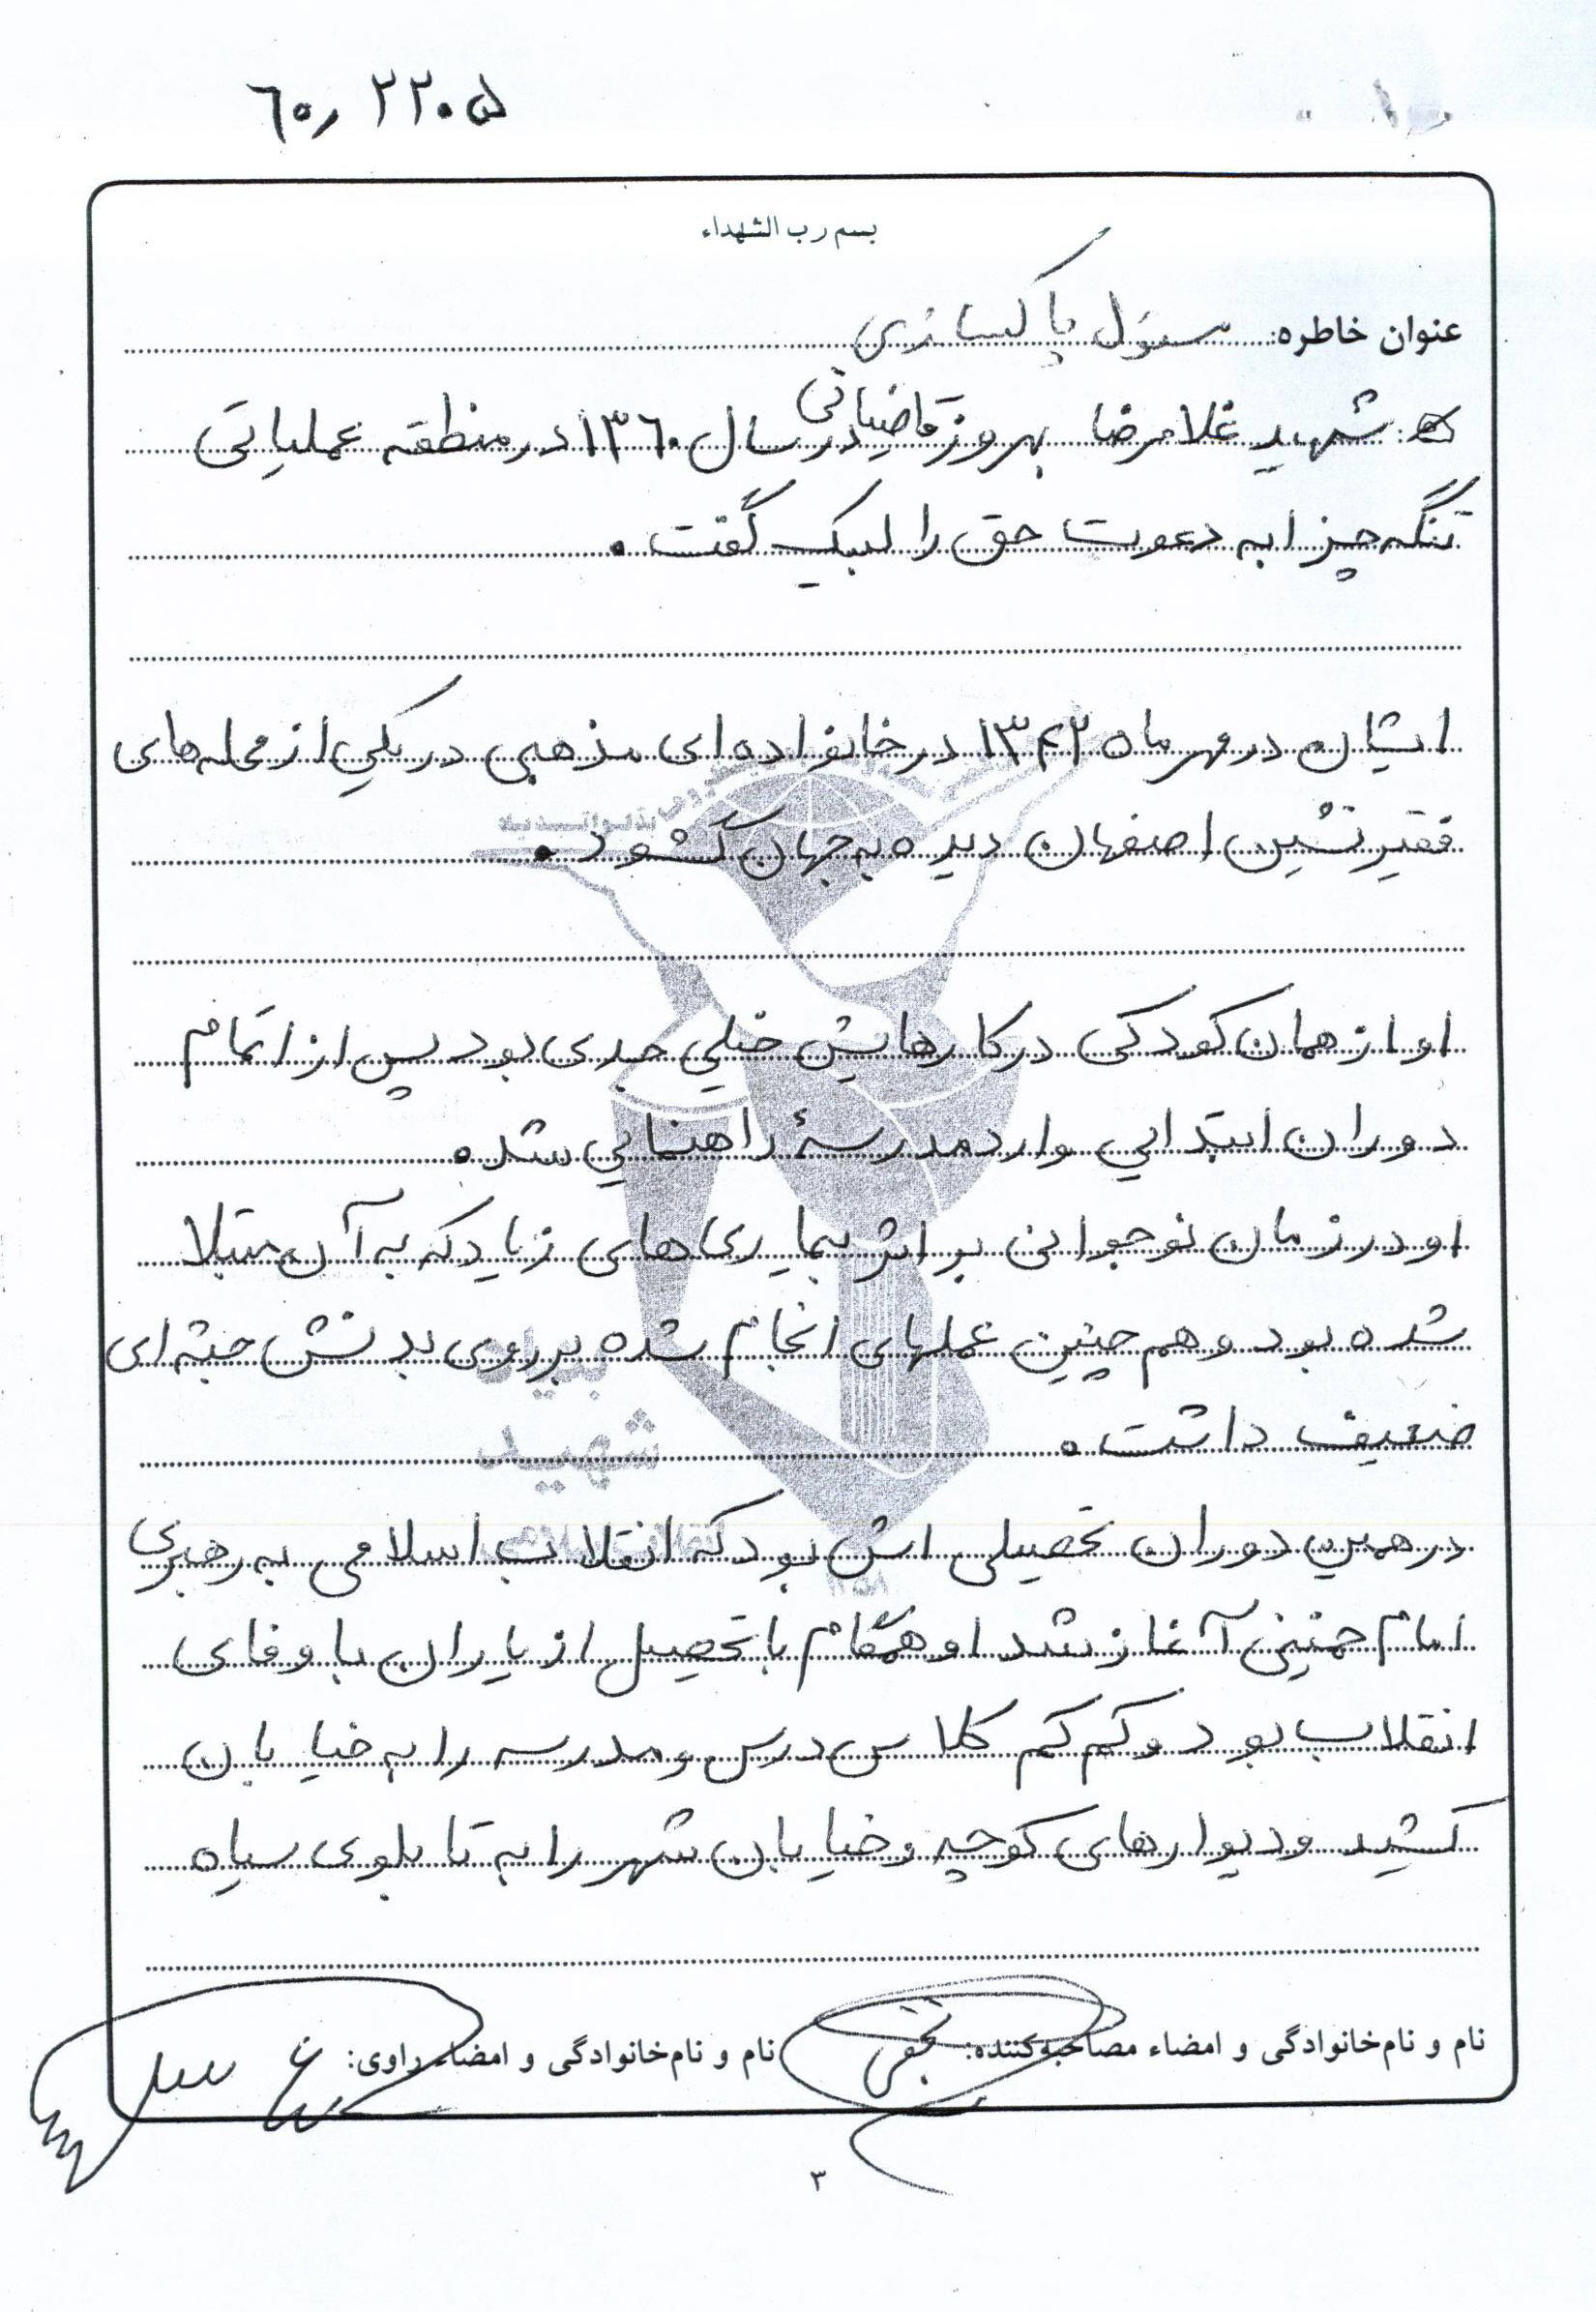 ۶۰٫۲۲۰۵
بسم رب الشهداء
عنوان خاطره: مسئول پاکسازی
شهید غلامرضا بهروز قاضیانی در سال ۱۳۶۰ در منطقه عملیاتی
تنگه چزابه دعوت حق را لبیک گفت.
ایشان در مهرماه ۱۳۴۲ در خانواده ای مذهبی در یکی از محله های
فقیرنشین اصفهان دیده به جهان گشود.
او از همان کودکی در کارهایش خیلی جدی بود پس از اتمام
دوران ابتدایی وارد مدرسۀ راهنمایی شد.
او در زمان نوجوانی بر اثر بیماری های زیاد که به آن مبتلا
شده بود و هم چنین عملهای انجام شده بر روی بدنش جثه ای
ضعیف داشت.
بنیاد
شهید
در همین دوران تحصیلی اش بود که انقلاب اسلامی به رهبری
امام خمینی آغاز شد او همگام با تحصیل از یاران با وفای
انقلاب بود و کم کم کلاس درس و مدرسه را به خیابان
کشید و دیوارهای کوچه و خیابان شهر را به تابلوی سیاه
نام و نام‌خانوادگی و امضاء مصاحبه‌کننده: نجفی
نام و نام‌خانوادگی و امضاء راوی:
۳